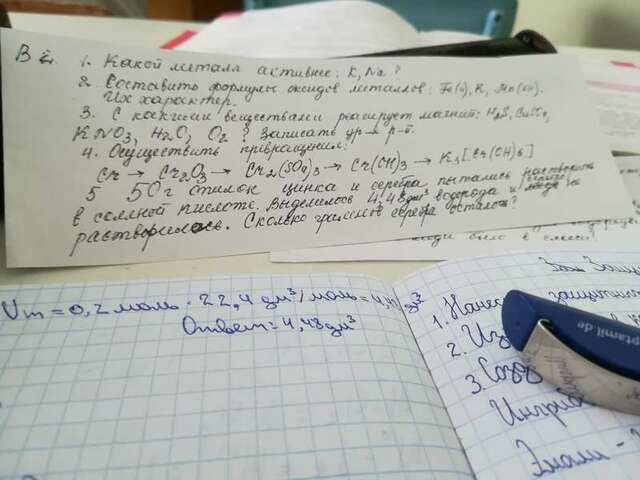 В 2. 1. Какой металл активнее: K, Na?
2. Составить формулы оксидов металлов: Fe(II), K, Mn(VII).
Их характер.
3. С какими веществами реагирует магний: H2S, CuSO4,
KNO3, H2O, O2? Записать ур-я р-й.
4. Осуществить превращения:
Cr → Cr2O3 → Cr2(SO4)3 → Cr(OH)3 → K3[Cr(OH)6]
5 50г опилок цинка и серебра пытались растворить
в соляной кислоте. Выделилось 4,48 дм3 водорода и
растворилось. Сколько граммов серебра осталось?
было в смеси?
Vm = 0,2 моль · 22,4 дм3/моль = 4,48 дм3
Ответ: 4,48 дм3
1. Нанес защитн
2. Из
3. Созд
Ингиб
Эмали -
ptamil.de